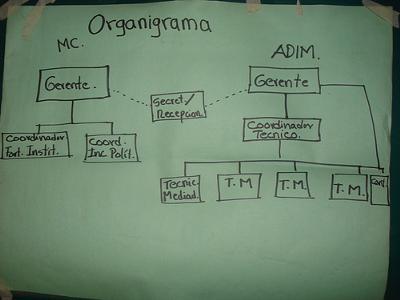 Organigrama
MC.
ADIM.
Gerente.
Gerente
Secret/
Recepcion.
Coordinador
Fort. Instit.
Coord.
Inc Polit.
Coordinador
Tecnico.
Tecnic.
Mediad.
T. M
T. M.
T. M.
Cont.